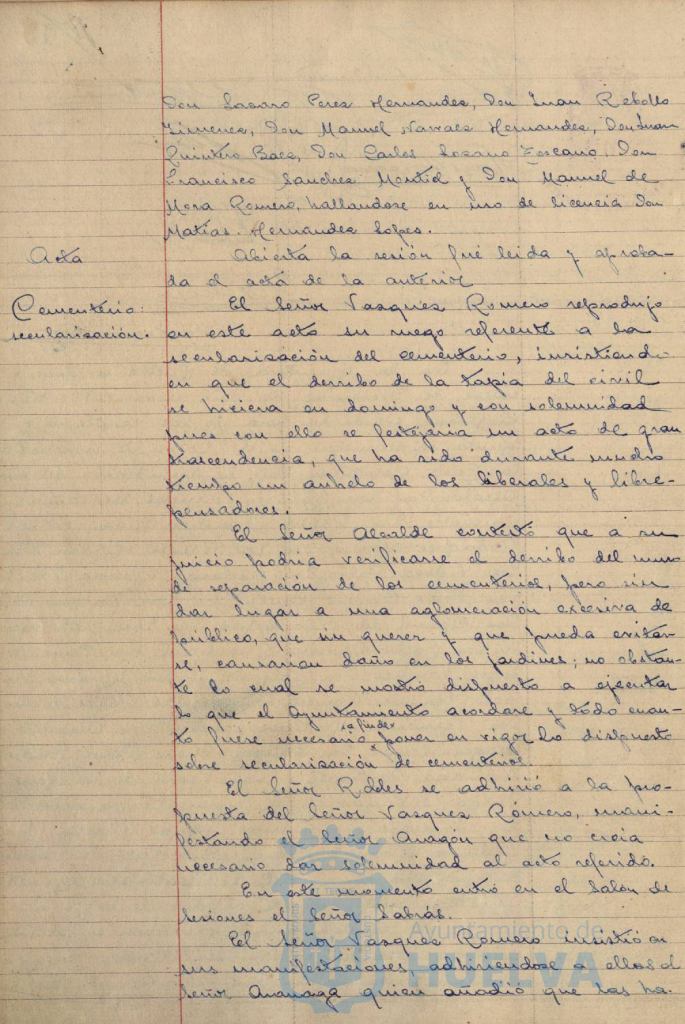 Don Lazaro Perez Hernandez, Don Juan Rebollo
Jimenez, Don Manuel Narvaez Hernandez, Don Juan
Quintero Baez, Don Carlos Lozano Toscano, Don
Francisco Sanchez Montiel y Don Manuel de
Mora Romero, hallandose en uso de licencia Don
Matías Hernandez Lopez.
Acta
Abierta la sesión fué leida y aproba-
da el acta de la anterior
Cementerio:
secularización.
El Señor Vazquez Romero reprodujo
en este acto su ruego referente a la
secularización del cementerio, insistiendo
en que el derribo de la tapia del civil
se hiciera en domingo y con solemnidad
pues con ello se festejaria un acto de gran
trascendencia, que ha sido durante mucho
tiempo un anhelo de los liberales y libre-
pensadores.
El Señor Alcalde contestó que a su
juicio podria verificarse el derribo del muro
de separación de los cementerios, pero sin
dar lugar a una aglomeración excesiva de
público, que sin querer y que pueda evitar-
se, causarian daño en los jardines; no obstan-
te lo cual se mostró dispuesto a ejecutar
lo que el Ayuntamiento acordase y todo cuan-
to fuere necesario a fin de poner en vigor lo dispuesto
sobre secularización de cementerios.
El Señor Robles se adhirió a la pro-
puesta del Señor Vazquez Romero, mani-
festando el Señor Aragón que no creia
necesario dar solemnidad al acto referido.
En este momento entró en el Salón de
Sesiones el Señor Sabrás.
El Señor Vazquez Romero insistió en
sus manifestaciones, adhiriendose a ellas el
Señor quien añadió que las ha-
Ayuntamiento de
HUELVA